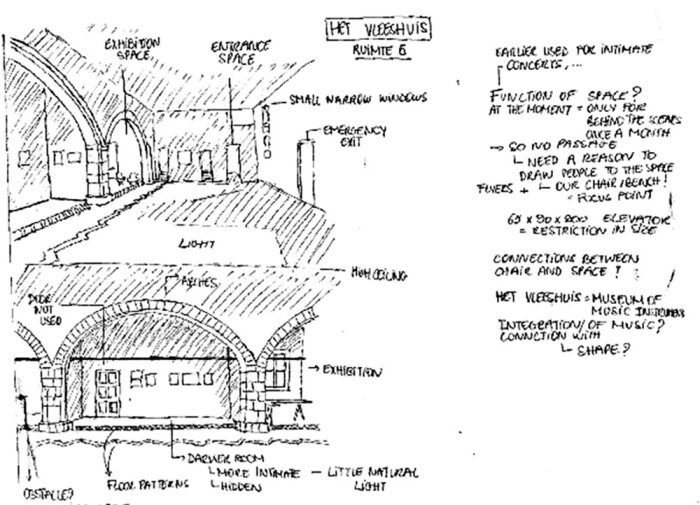 HET VLEESHUIS
RUIMTE 6
EXHIBITION
SPACE
ENTRANCE
SPACE
SMALL NARROW WINDOWS
EMERGENCY
EXIT
LIGHT
HIGH CEILING
ARCHES
DOOR
NOT
USED
EXHIBITION
DARKER ROOM
MORE INTIMATE – LITTLE NATURAL
LIGHT
HIDDEN
FLOOR PATTERNS
OBSTACLE?
EARLIER USED FOR INTIMATE
CONCERTS, ...
FUNCTION OF SPACE?
AT THE MOMENT = ONLY FOR
BEHIND THE SCENES
ONCE A MONTH
→ SO NO PASSAGE
NEED A REASON TO
DRAW PEOPLE TO THE SPACE
FLYERS + OUR CHAIR/BENCH!
= FOCUS POINT
65 x 90 x 200 ELEVATOR
= RESTRICTION IN SIZE
CONNECTIONS BETWEEN
CHAIR AND SPACE?
HET VLEESHUIS = MUSEUM OF
MUSIC INSTRUMENTS
INTEGRATION/OF MUSIC?
CONNCTION WITH
SHAPE?